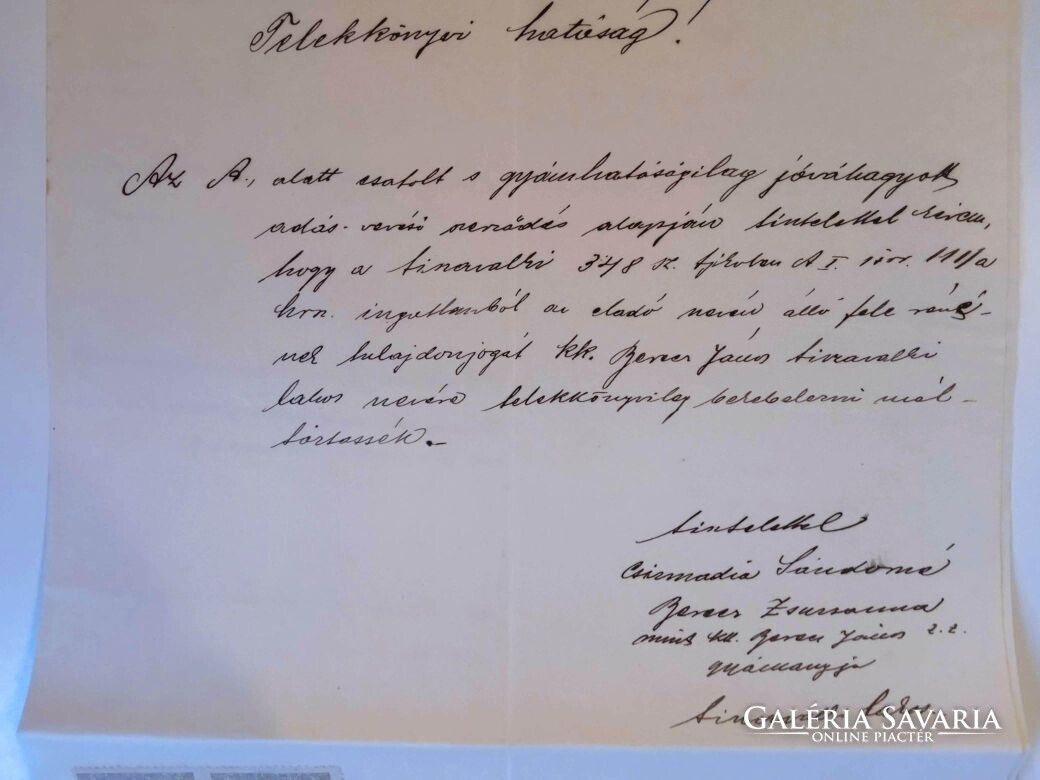 Telekkönyvi hatóság!
Az A., alatt csatolt s gyámhatóságilag jóváhagyott
adás-vevési szerződés alapján tisztelettel kérem,
hogy a tiszavalki 348 sz. tjkvben A I. sor. 111/a
hrsz. ingatlanból az eladó nevén álló fele részé-
nek tulajdonjogát kk. Berecz János tiszavalki
lakos nevére telekkönyvileg bekebelezni mél-
tóztassék.-
tisztelettel
Csizmadia Sándorné
Berecz Zsuzsanna
mint kk. Berecz János
gyámanyja
tiszavalki lakos
GALÉRIA SAVARIA
ONLINE PIACTÉR